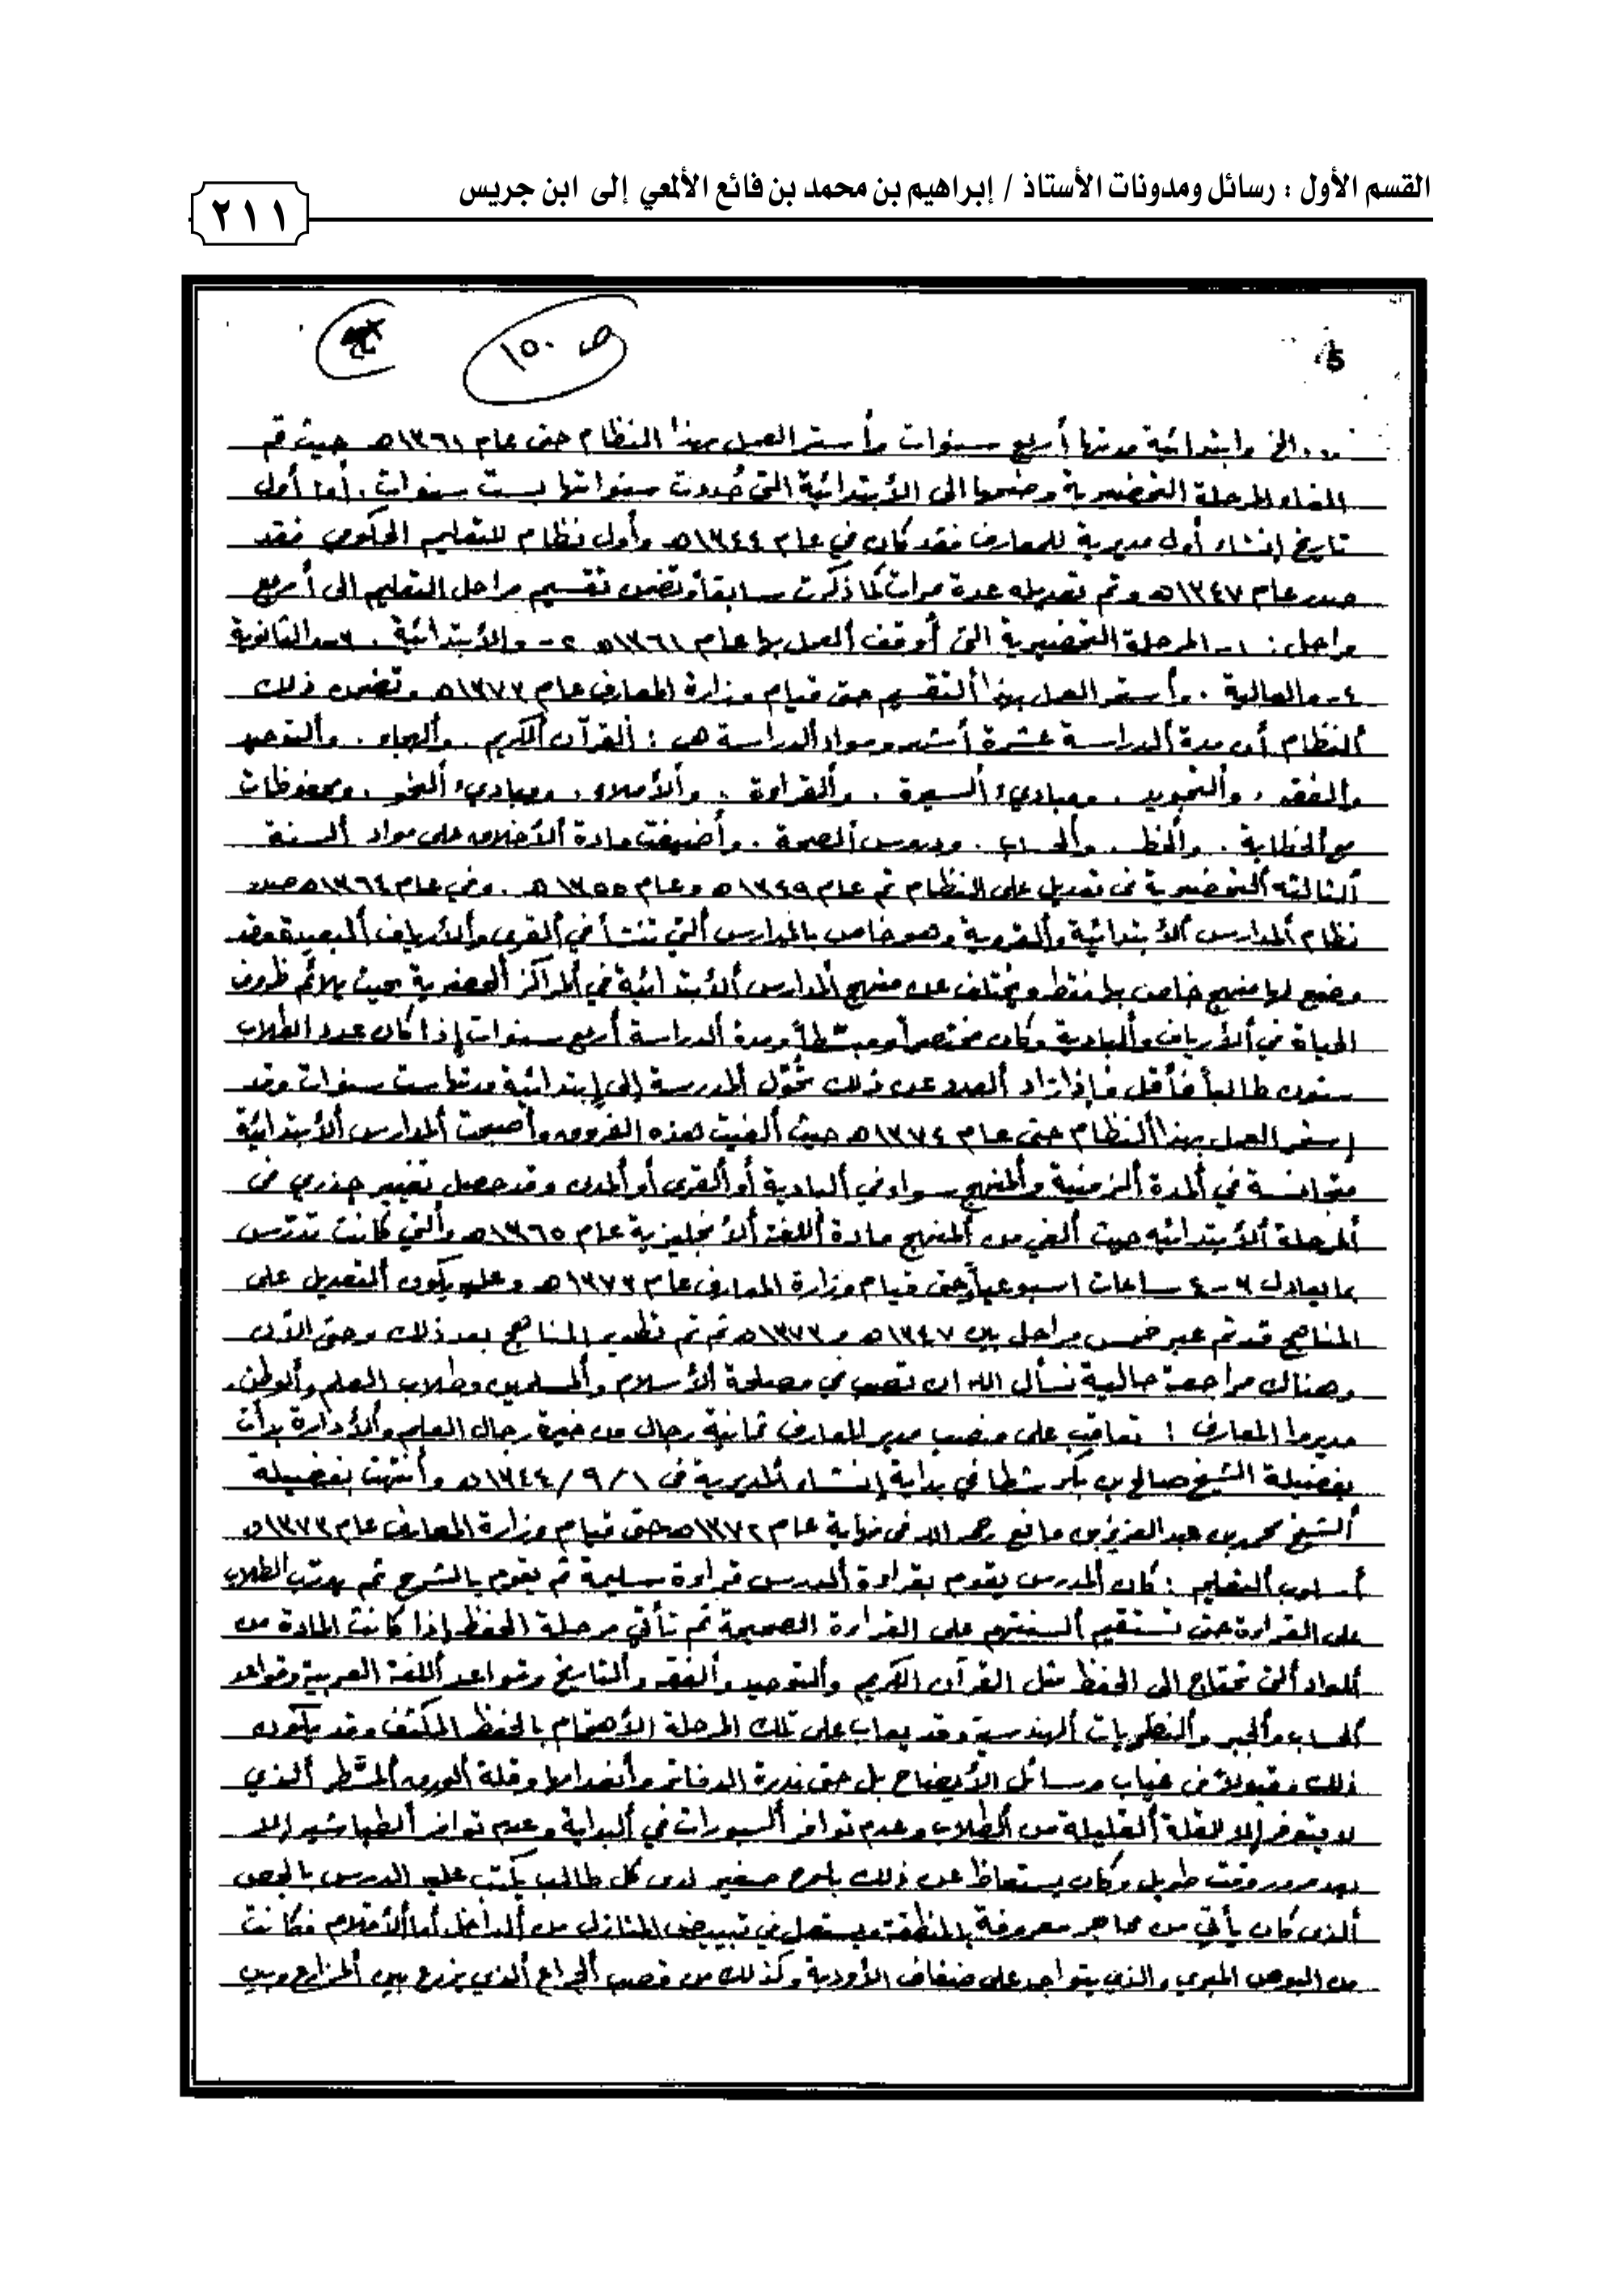 القسم الأول : رسائل ومدونات الأستاذ / إبراهيم بن محمد بن فائع الألمعي إلى ابن جريس
٢١١
ص ١٥٠
5
الخ وابتدائية مدتها أربع سنوات وأستمر العمل بهذا النظام حتى عام ١٣٦١هـ حيث تم
الغاء المرحلة التحضيرية وضمها الى الأبتدائية التي حُددت سنواتها بست سنوات . أما أول
تاريخ إنشاء أول مديرية للمعارف فقد كان في عام ١٣٤٤هـ وأول نظام للتعليم الحكومي فقد
صدر عام ١٣٤٧هـ وتم تعديله عدة مرات كما ذكرت سابقاً وتضمن تقسيم مراحل التعليم الى أربع
مراحل : ١- المرحلة التحضيرية التي أوقف العمل بها عام ١٣٦١هـ ٢- والأبتدائية . ٣- والثانوية
٤- والعالية . وأستمر العمل بهذا التقسيم حتى قيام وزارة المعارف عام ١٣٧٣هـ وتضمن ذلك
النظام أن مدة الدراسة عشرة أشهر ومواد الدراسة هي : القرآن الكريم . والهجاء . والتوحيد
والفقه . والتجويد . ومبادئ السيرة . والقراءة . والأملاء . ومبادئ النحو . ومحفوظات
مع الخطابة . والخط . والحساب . ودروس الصحة . وأضيفت مادة الأخلاق على مواد السنة
الثالثة التحضيرية في تعديل على النظام تم عام ١٣٤٩هـ وعام ١٣٥٥هـ . وفي عام ١٣٦٤هـ صدر
نظام المدارس الأبتدائية والقروية وهو خاص بالمدارس التي تنشأ في القرى والأرياف البعيدة وقد
وضع لها منهج خاص بها فقط ويختلف عن منهج المدارس الأبتدائية في المراكز الحضرية بحيث يلائم ظروف
الحياة في الأرياف والبادية وكان مختصراً ومبسّطاً ومدة الدراسة أربع سنوات إذا كان عدد الطلاب
ستون طالباً فأقل فإذا زاد العدد عن ذلك تحوّل المدرسة إلى إبتدائية مدتها ست سنوات وقد
إستمر العمل بهذا النظام حتى عام ١٣٧٤هـ حيث ألغيت هذه الفروق وأصبحت المدارس الأبتدائية
متجانسة في المدة الزمنية والمنهج سواء في البادية أو القرى أو المدن وقد حصل تغيير جذري في
المرحلة الأبتدائية حيث ألغي من المنهج مادة اللغة الأنجليزية عام ١٣٦٥هـ والتي كانت تدرّس
بما يعادل ٣-٤ ساعات اسبوعياً حتى قيام وزارة المعارف عام ١٣٧٣هـ وعليه يكون التعديل على
المناهج قد تم عبر خمس مراحل بين ١٣٤٧هـ و ١٣٧٣هـ ثم تم تطوير المناهج بعد ذلك وحتى الآن
وهناك مراجعة حالية نسأل الله ان تصب في مصلحة الأسلام والمسلمين وطلاب العلم والوطن .
مديروا المعارف : تعاقب على منصب مدير المعارف ثمانية رجال من خيرة رجال العلم والأدارة بدأت
بفضيلة الشيخ صالح بن بكر شطا في بداية إنشاء المديرية في ١/٩/١٣٤٤هـ وأنتهت بفضيلة
الشيخ محمد بن عبدالعزيز بن مانع رحمه الله في نهاية عام ١٣٧٢هـ حتى قيام وزارة المعارف عام ١٣٧٣هـ
أسلوب التعليم : كان المدرس يقوم بقراءة الدرس قراءة سليمة ثم يقوم بالشرح ثم يدرّب الطلاب
على القراءة حتى تستقيم ألسنتهم على القراءة الصحيحة ثم تأتي مرحلة الحفظ إذا كانت المادة من
المواد التي تحتاج الى الحفظ مثل القرآن الكريم والتوحيد والفقه والتاريخ وقواعد اللغة العربية وقواعد
الحساب والجبر والنظريات الهندسية وقد يعاب على تلك المرحلة الأهتمام بالحفظ المكثف وقد يكون
ذلك مقبولاً في غياب وسائل الأيضاح بل حتى ندرة الدفاتر وأنعدامها وقلة الورق المسّطر الذي
لا يتوفر إلا للقلة القليلة من الطلاب وعدم توافر السبورات في البداية وعدم توافر الطباشير إلا
بعد مرور وقت طويل وكان يستعاظ عن ذلك بلوح صغير لدى كل طالب يكتب عليه الدرس بالجص
الذي كان يأتي من محاجر معروفة بالمنطقة ويستعمل في تبييض المنازل من الداخل أما الأقلام فكانت
من البوص المبري والذي يتواجد على ضفاف الأودية وكذلك من قصب الجراع الذي يزرع بين المزارع وبين